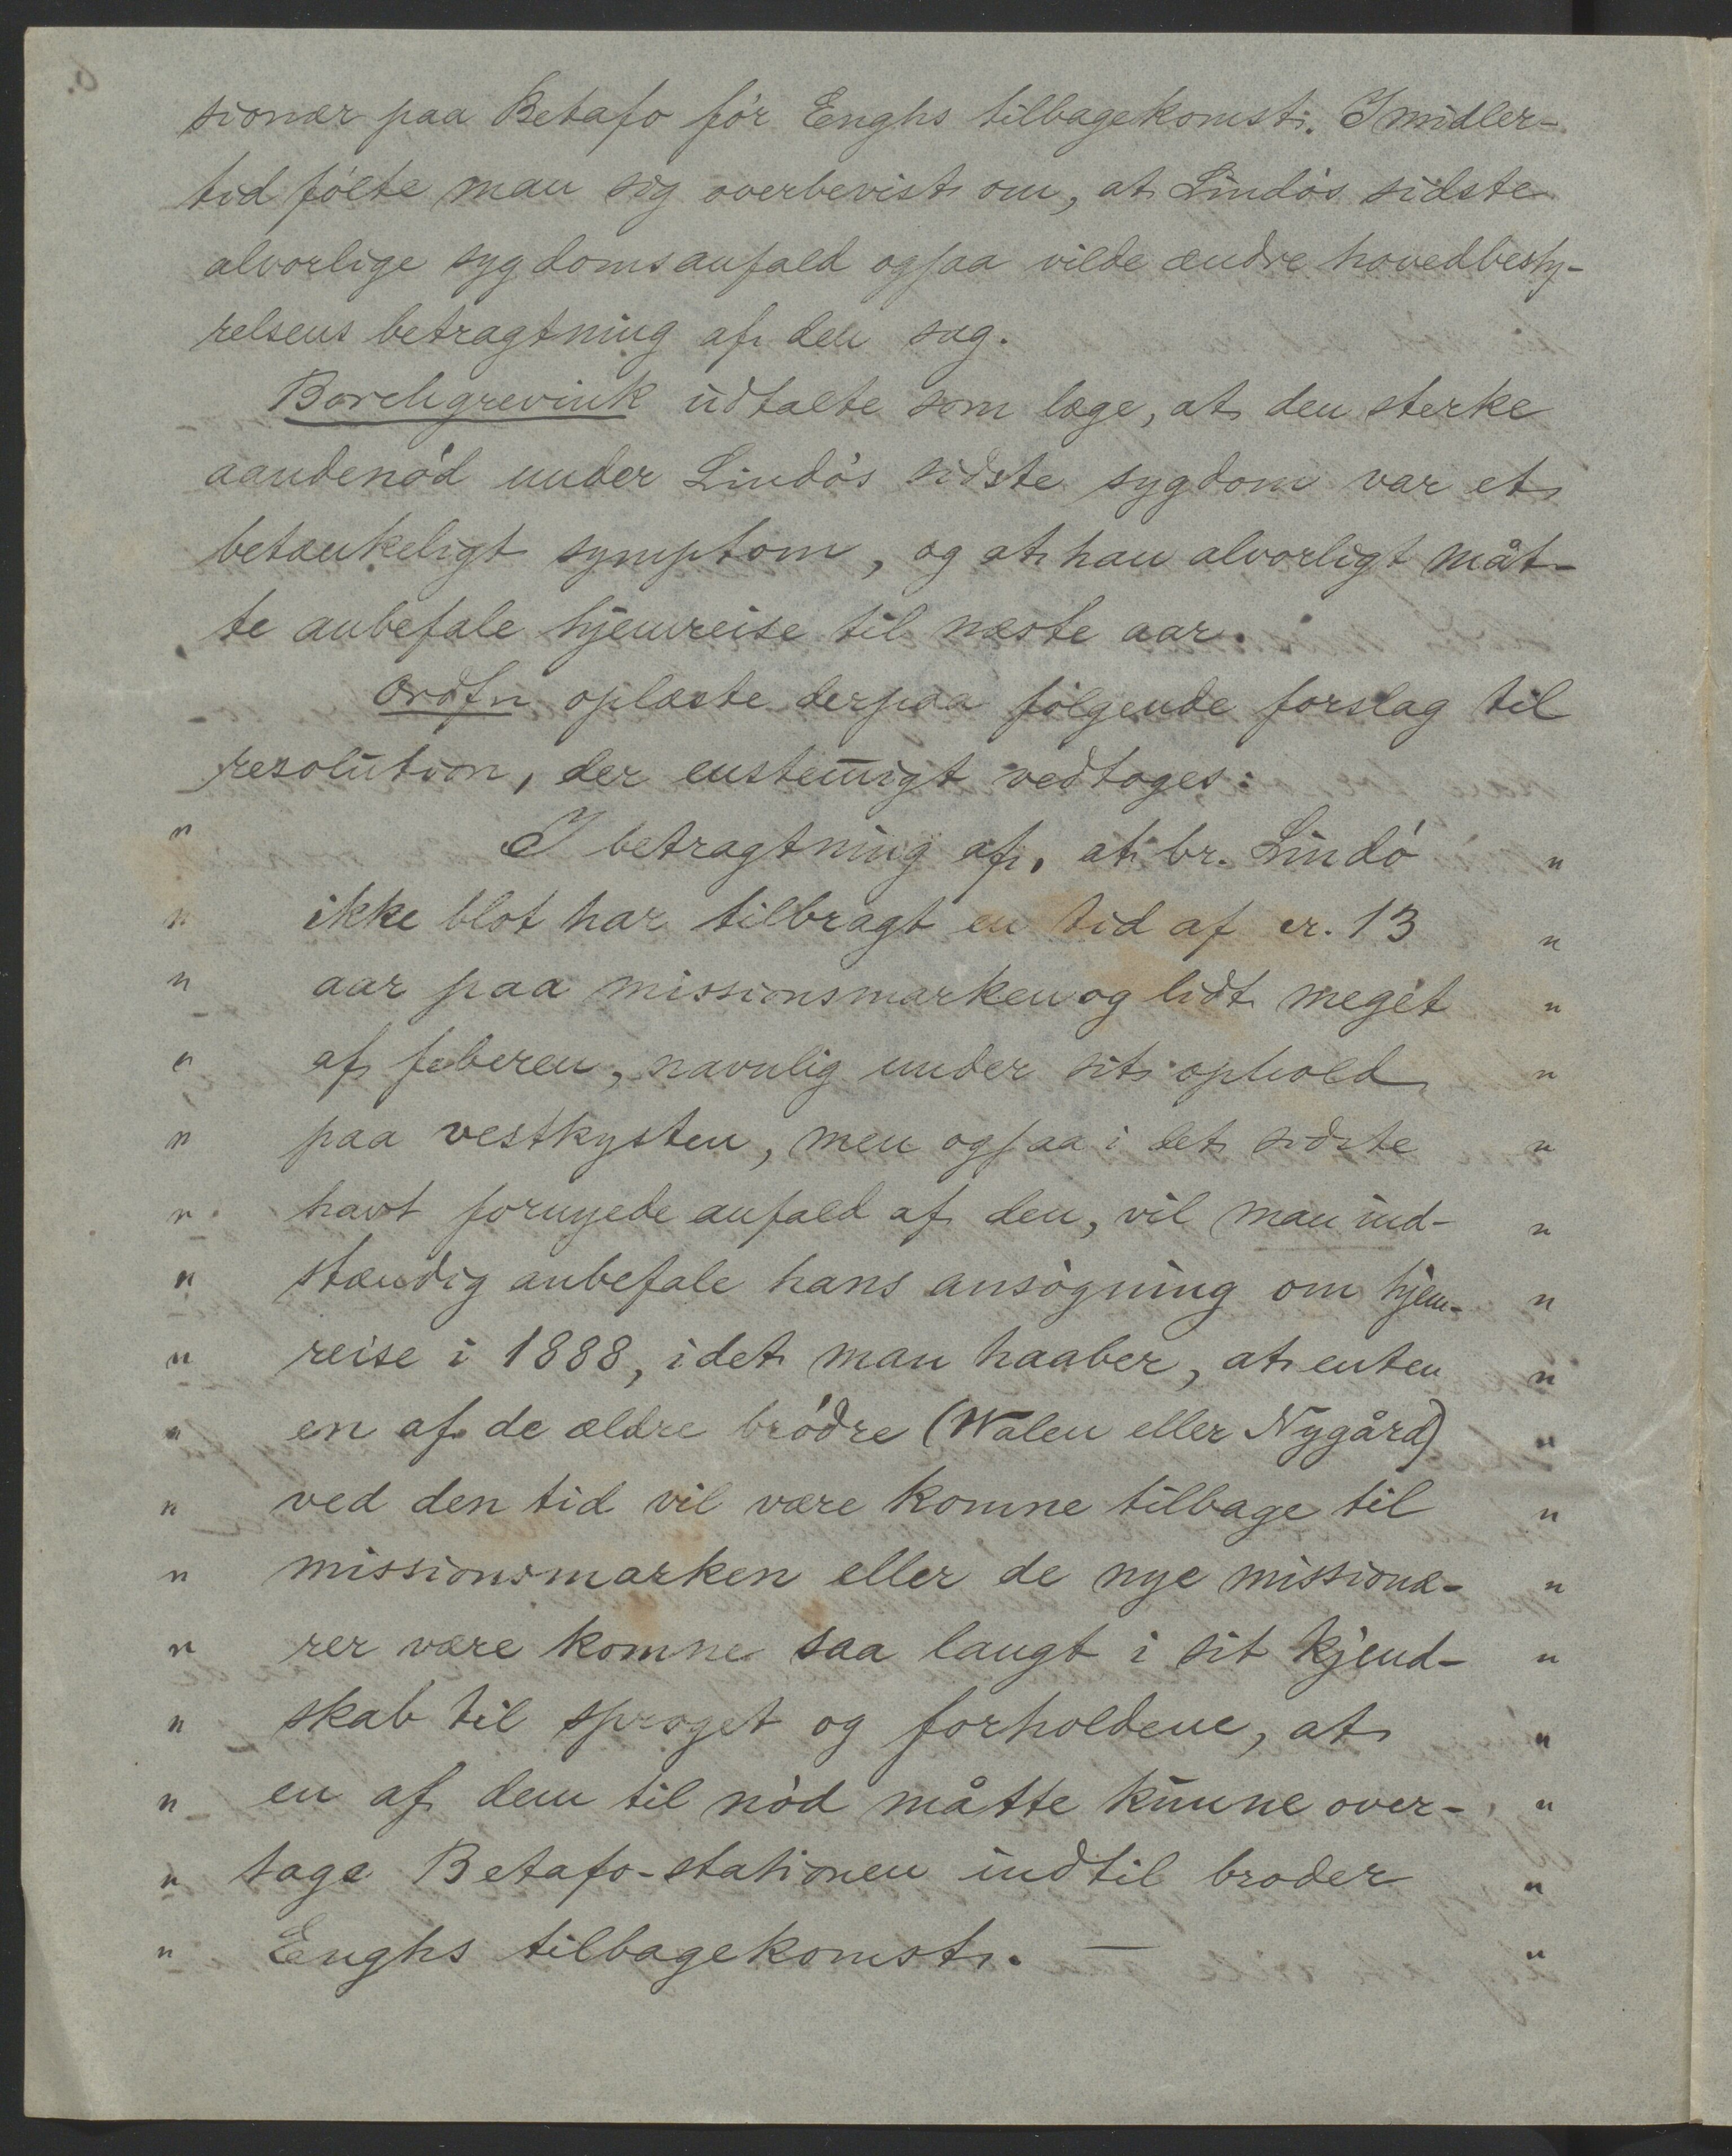 sionær paa Betafo før Enghs tilbagekomst. Imidler-
tid følte man sig overbevist om, at Lindøs sidste
alvorlige sygdomsanfald ogsaa vilde ændre hovedbesty-
relsens betragtning af den sag.
Borchgrevink udtalte som læge, at den sterke
aandenød under Lindøs sidste sygdom var et
betænkeligt symptom, og at han alvorligt måt-
te anbefale hjemreise til næste aar.
Ordfn oplæste derpaa følgende forslag til
resolution, der enstemigt vedtoges:
" I betragtning af, at br. Lindø "
" ikke blot har tilbragt en tid af cr. 13 "
" aar paa missionsmarken og lidt meget "
" af feberen, navnlig under sit ophold "
" paa vestkysten, men ogsaa i det sidste "
" havt fornyede anfald af den, vil man ind- "
" stændig anbefale hans ansøgning om hjem- "
" reise i 1888, idet man haaber, at enten "
" en af de ældre brødre (Walen eller Nygård) "
" ved den tid vil være komne tilbage til "
" missionsmarken eller de nye missionæ- "
" rer være komne saa langt i sit kjend- "
" skab til sproget og forholdene, at "
" en af dem til nød måtte kunne over- "
" tage Betafo-stationen indtil broder "
" Enghs tilbagekomst. — "